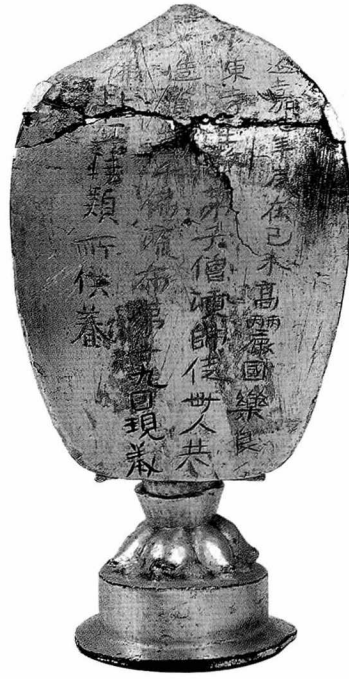 延嘉七年歲在己未高麗國樂良
東寺主弟子僧演師徒卌人共
造賢劫千佛流布第廿九回現歲
佛比丘類所供養